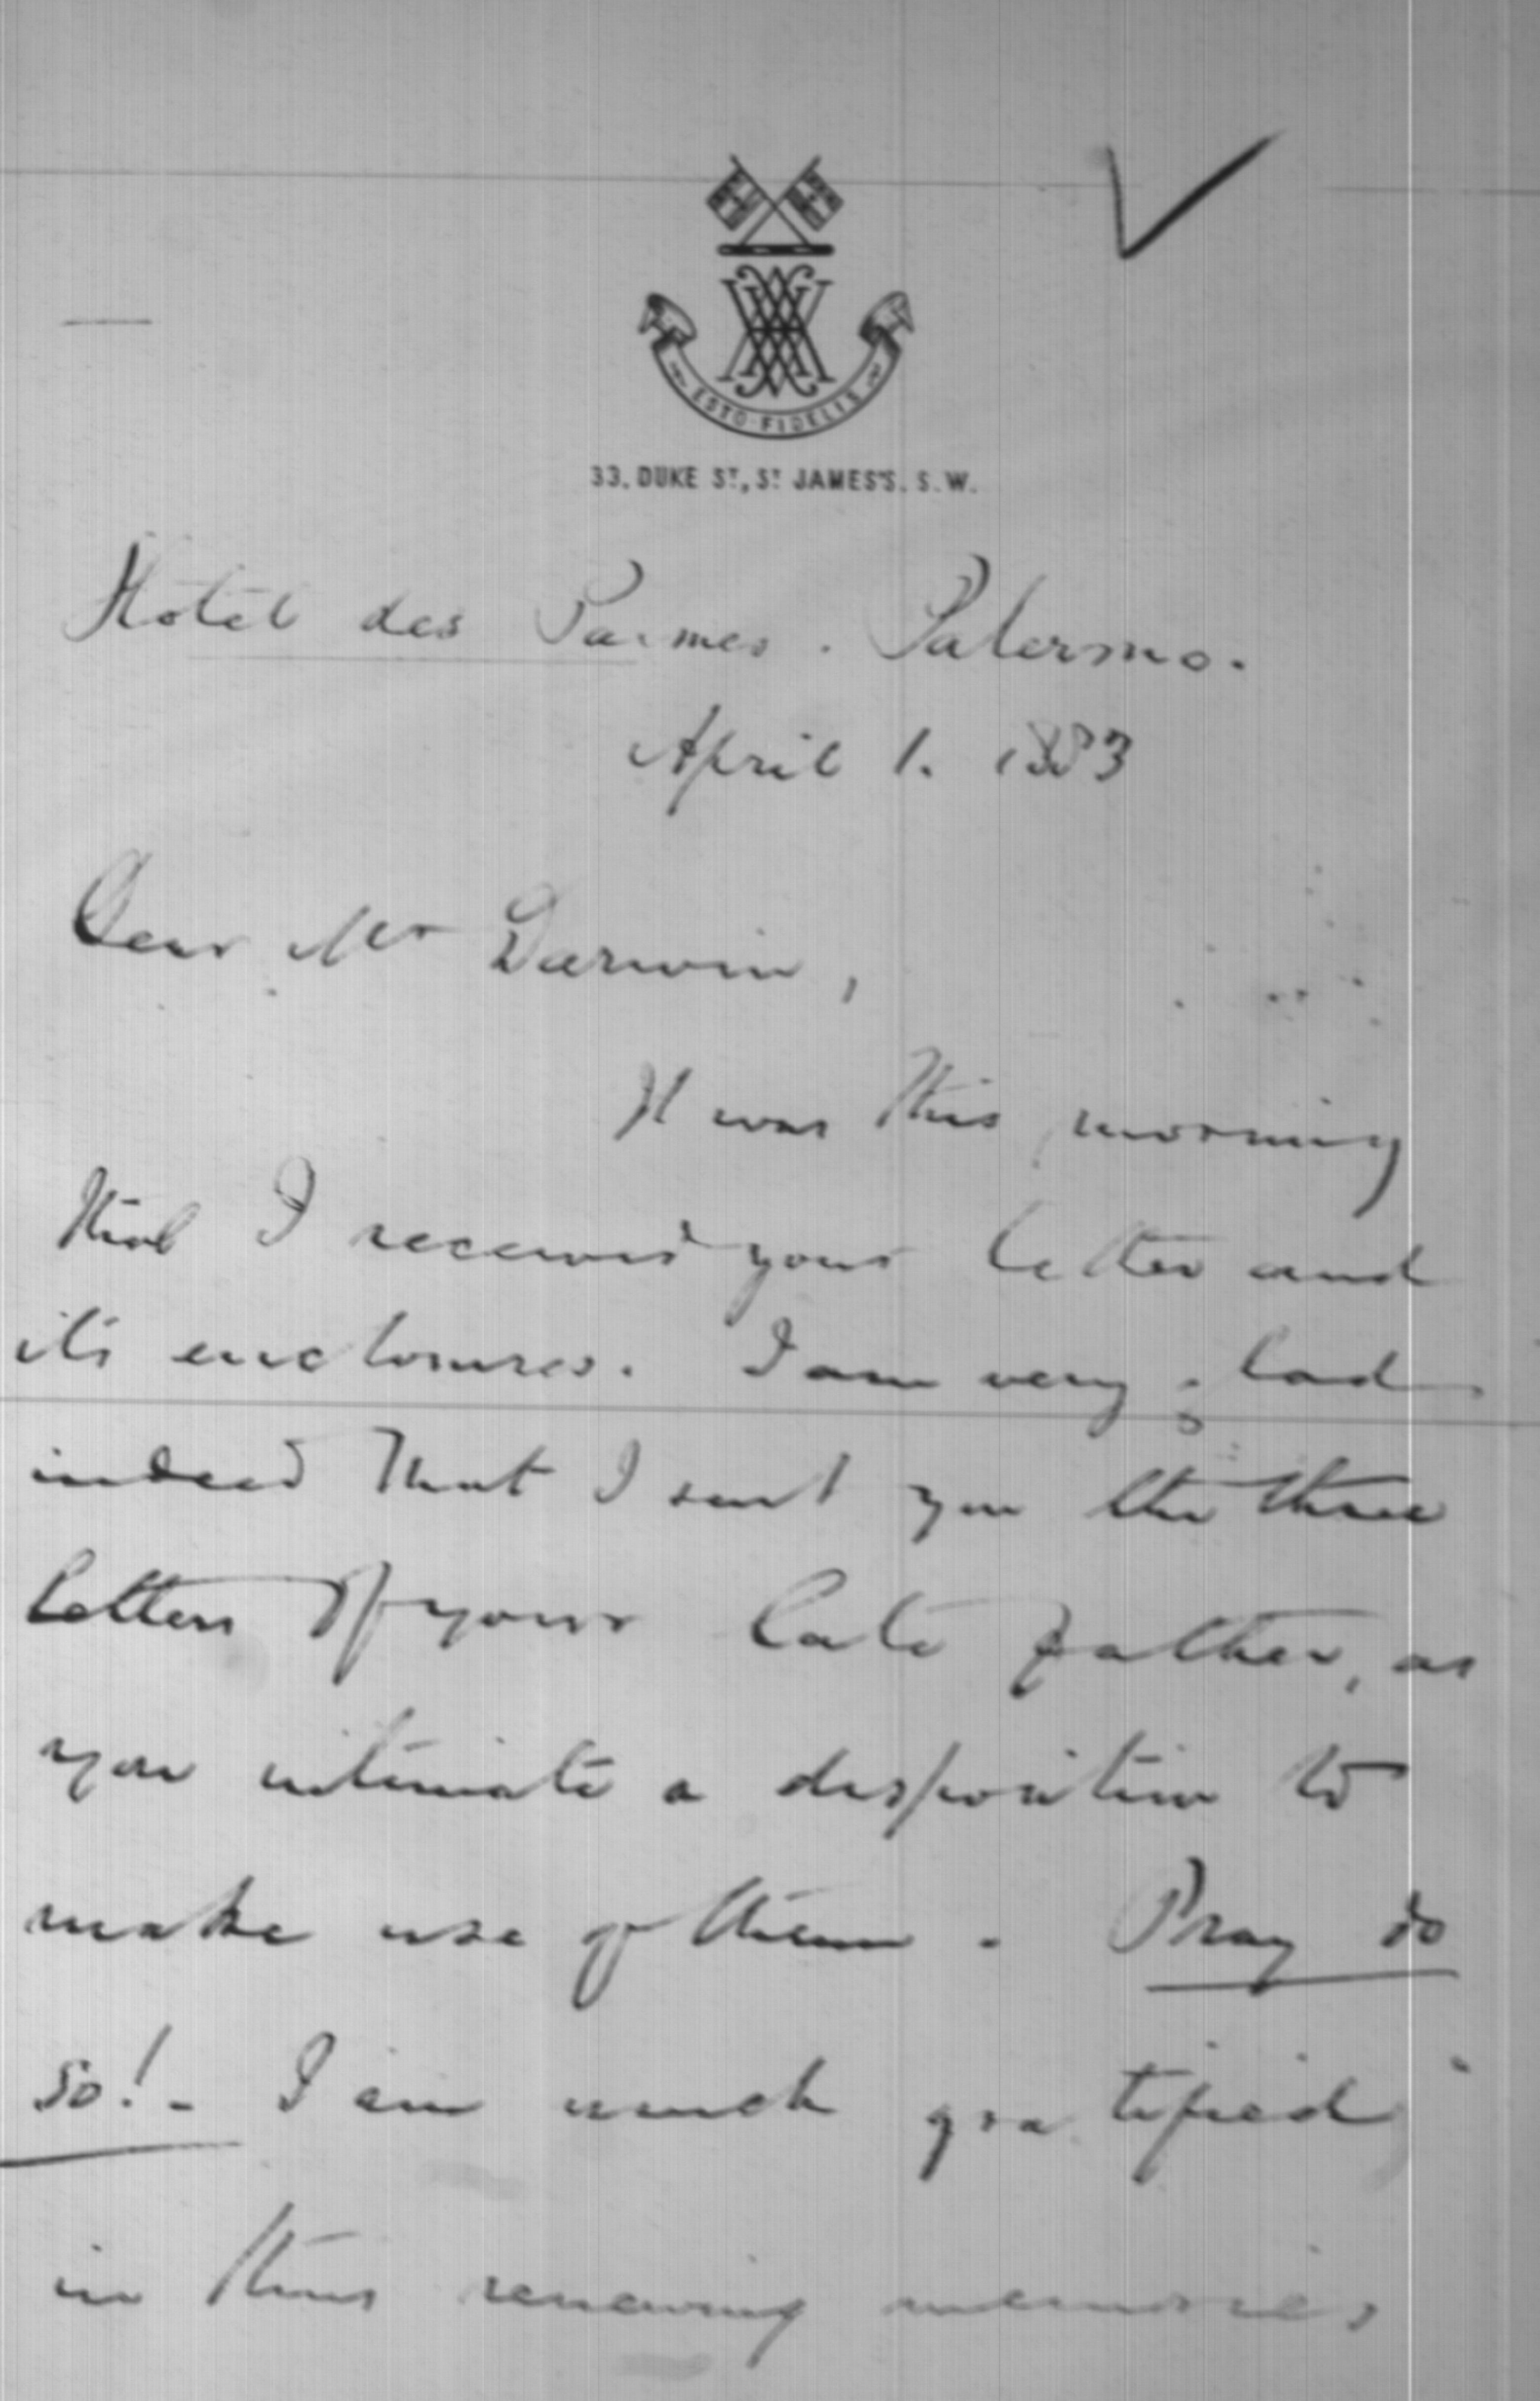 ESTO FIDELIS
33, DUKE ST, ST JAMES'S. S.W.
Hotel des Palmes. Palermo.
April 1. 1883
Dear Mr Darwin,
It was this morning
that I received your letter and
its enclosures. I am very glad
indeed that I sent you the three
letters of your late father, as
you intimate a disposition to
make use of them. Pray do
so! - I am much gratified
in thus renewing memories